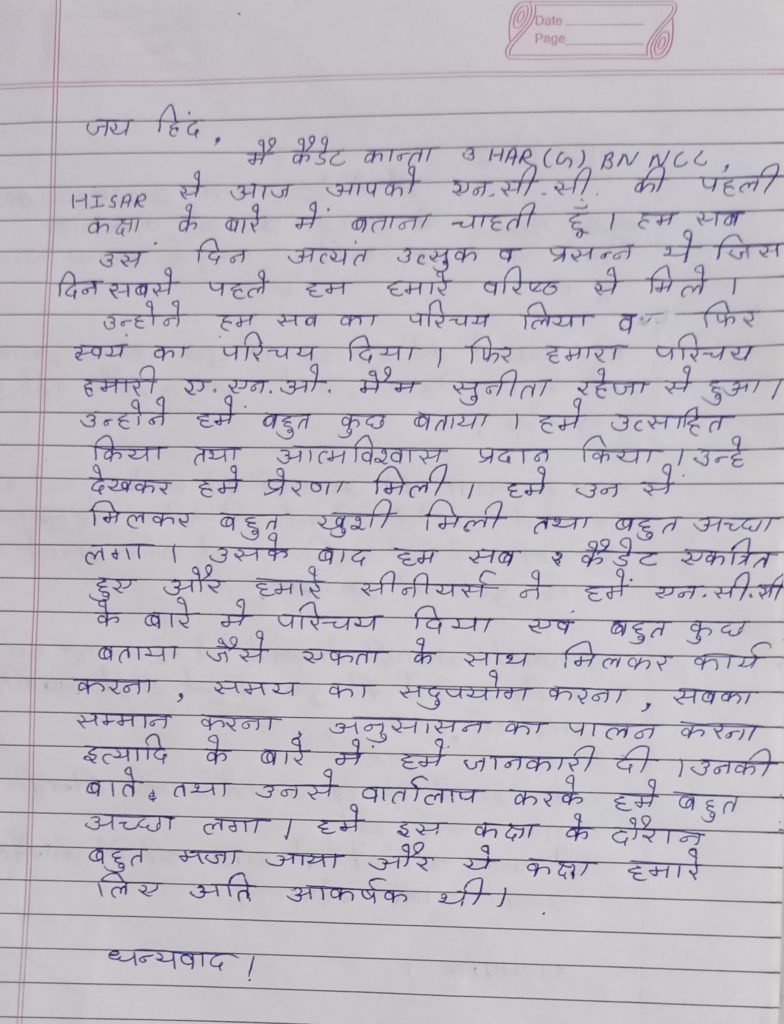 Date
Page
जय हिंद,
मै कैडेट कान्ता 3 HAR (G) BN NCC,
HISAR से आज आपको एन.सी.सी. की पहली
कक्षा के बारे में बताना चाहती हूँ । हम सब
उस दिन अत्यंत उत्सुक व प्रसन्न थे जिस
दिन सबसे पहले हम हमारे वरिष्ठ से मिले ।
उन्होने हम सब का परिचय लिया व फिर
स्वयं का परिचय दिया । फिर हमारा परिचय
हमारी ए.एन.ओ. मैम सुनीता रहेजा से हुआ।
उन्होने हमें बहुत कुछ बताया । हमे उत्साहित
किया तथा आत्मविश्वास प्रदान किया । उन्हे
देखकर हमे प्रेरणा मिली । हमे उन से
मिलकर बहुत खुशी मिली तथा बहुत अच्छा
लगा । उसके बाद हम सब कैडेट एकत्रित
हुए और हमारे सीनीयर्स ने हमें एन.सी.सी
के बारे मे परिचय दिया एवं बहुत कुछ
बताया जैसे एकता के साथ मिलकर कार्य
करना , समय का सदुपयोग करना , सबका
सम्मान करना , अनुसासन का पालन करना
इत्यादि के बारे में हमें जानकारी दी । उनकी
बाते तथा उनसे वार्तालाप करके हमे बहुत
अच्छा लगा । हमे इस कक्षा के दौरान
बहुत मजा आया और ये कक्षा हमारे
लिए अति आकर्षक थी।
धन्यवाद !